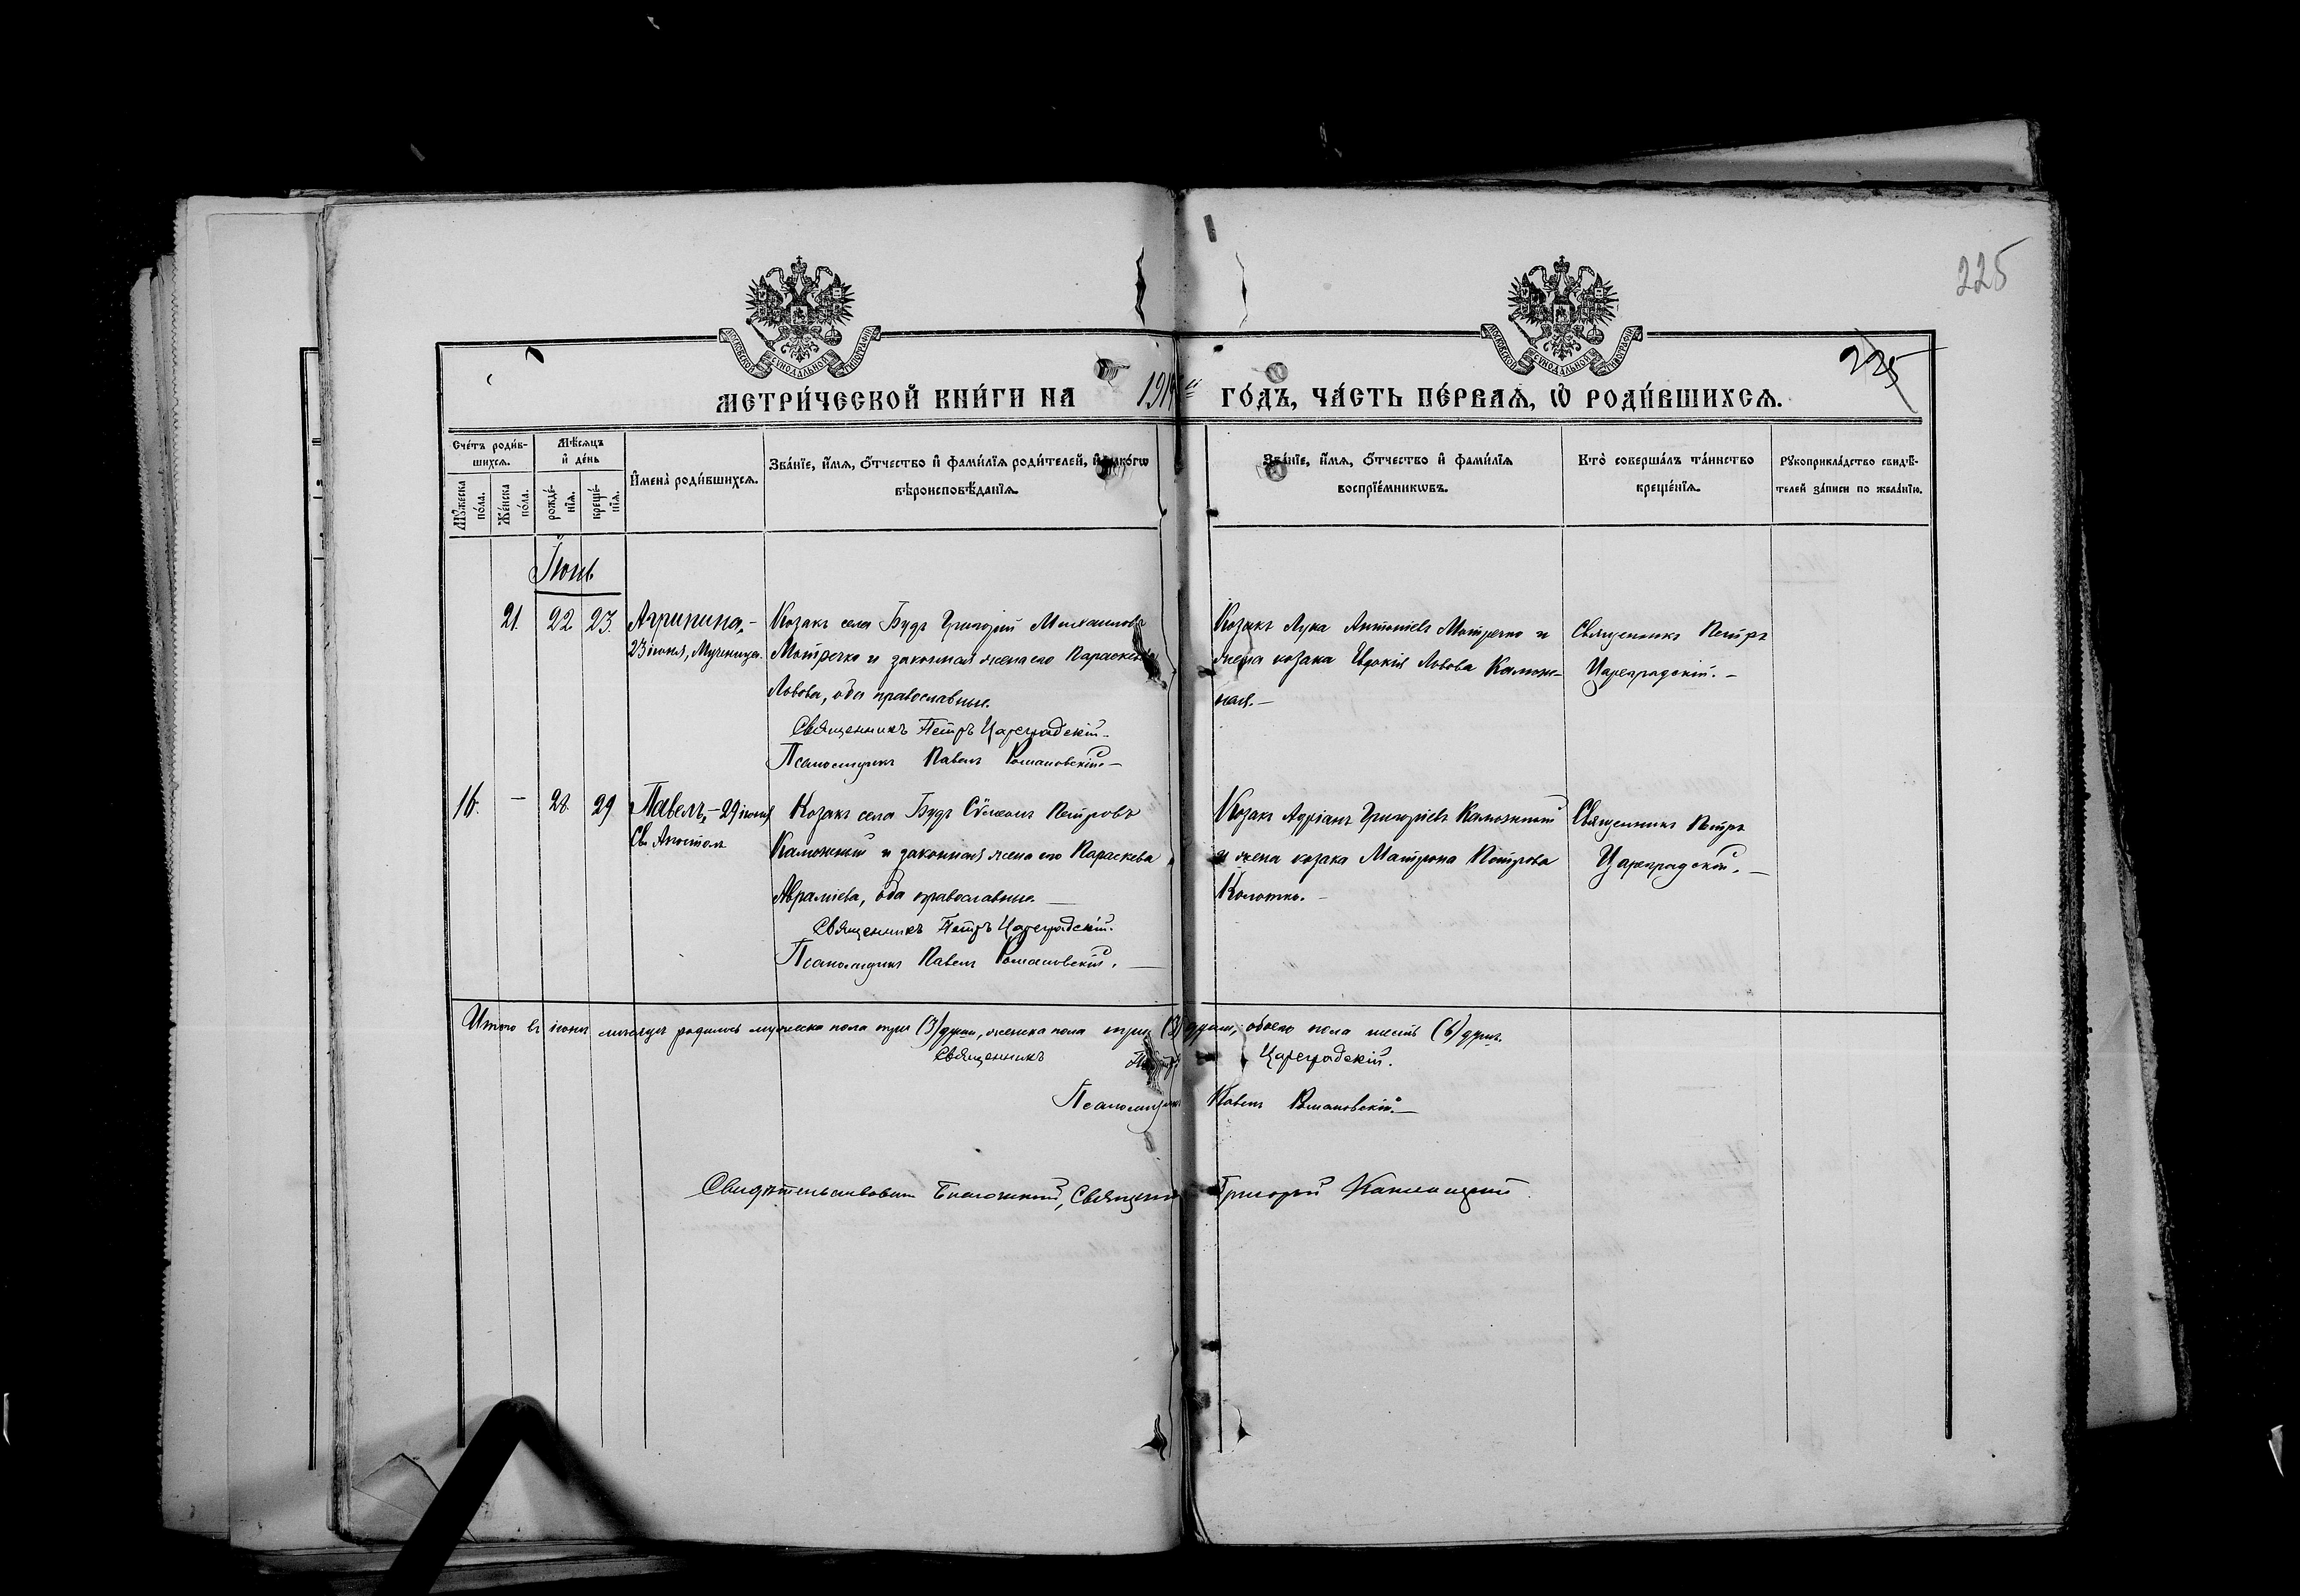 225
225
МОСКОВСКОЙ СѴНОДАЛЬНОЙ ТИПОГРАФІИ
МОСКОВСКОЙ СѴНОДАЛЬНОЙ ТИПОГРАФІИ
МЕТРИ́ЧЕСКОЙ КНИ́ГИ НА 1914 ГО́ДЪ, ЧА́СТЬ ПЕ́РВАѦ, Ѡ҆ РОДИ́ВШИХСѦ.
Сче́тъ роди́в-
шихсѧ.
Мѣ́сѧцъ
и҆ де́нь
Мꙋ́жеска
по́ла.
Же́нска
по́ла.
рожде́-
нїѧ.
креще́-
нїѧ.
И҆мена̀ роди́вшихсѧ.
Зва́нїе, и҆́мѧ, о҆́тчество и҆ фами́лїѧ роди́телей, и҆ како́гѡ
вѣроисповѣ́данїѧ.
Зва́нїе, и҆́мѧ, о҆́тчество и҆ фами́лїѧ
воспрїе́мникѡвъ.
Кто̀ соверша́лъ та́инство
креще́нїѧ.
Рꙋкоприкла́дство свидѣ́-
телей за́писи по жела́нїю.
Іюнь
21. 22. 23. Агрипина, –
23 іюня, Мученица.
Козакъ села Будъ Григорій Михаиловъ
Мотречко и законная жена его Параскева
Львова, оба православные.
Священникъ Петръ Цареградскій.
Псаломщикъ Павелъ Романовскій. –
Козакъ Лука Антоніевъ Мотречко и
жена козака Евдокія Львова Калюж-
ная. –
Священникъ Петръ
Цареградскій. –
16. – 28. 29. Павелъ, – 29 іюня
Св. Апостолъ
Козакъ села Будъ Сѵмеонъ Петровъ
Калюжный и законная жена его Параскева
Авраміева, оба православные. –
Священникъ Петръ Цареградскій.
Псаломщикъ Павелъ Романовскій. –
Козакъ Адріанъ Григоріевъ Калюжный
и жена козака Матрона Петрова
Колотко. –
Священникъ Петръ
Цареградскій. –
Итого въ іюнѣ мѣсяцѣ родилось мужеска пола три (3) души, женска пола три (3) души, обоего пола шесть (6) душъ.
Священникъ Петръ Цареградскій.
Псаломщикъ Павелъ Романовскій. –
Свидѣтельствовалъ Благочинный, Священникъ Григорій